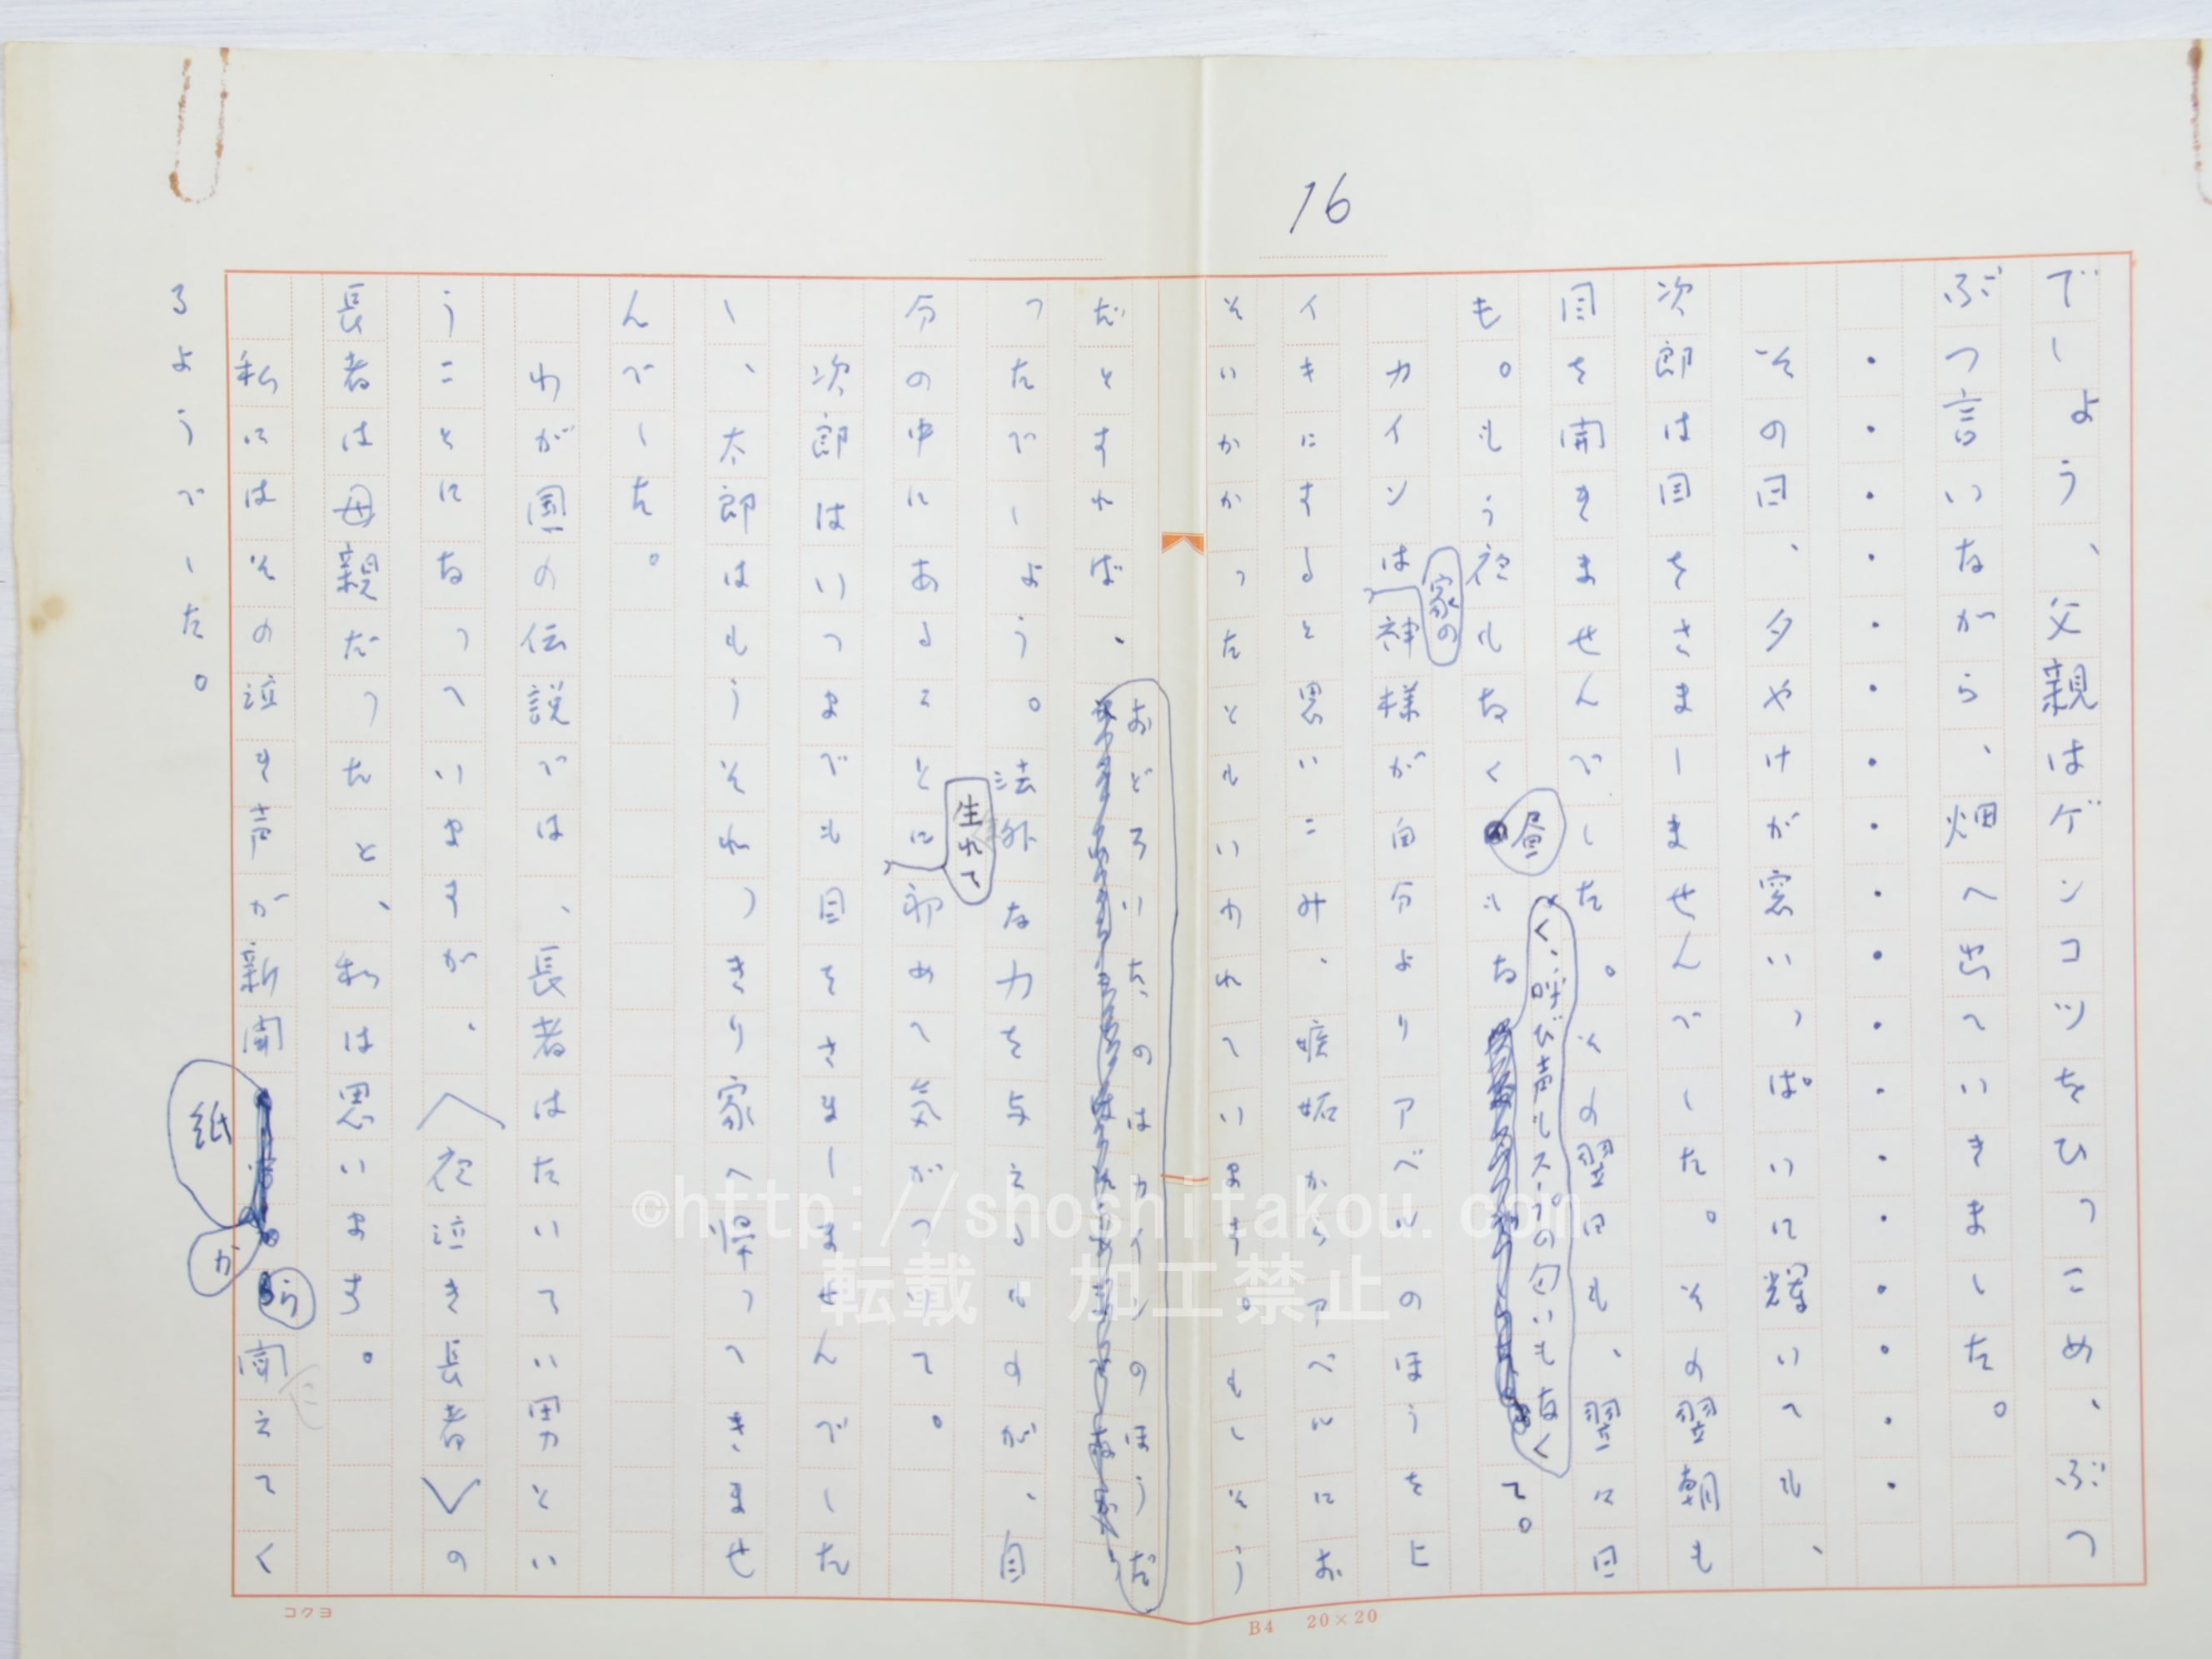 16
でしょう、父親はゲンコツをひっこめ、ぶつ
ぶつ言いながら、畑へ出ていきました。
・・・・・・・・・・・・・・・・・・
その日、夕やけが窓いっぱいに輝いても、
次郎は目をさましませんでした。その翌朝も
目を開きませんでした。その翌日も、翌々日
も。もう夜もなく昼もなく、呼び声もスープの匂いもなくて。
カインは家の神様が自分よりアベルのほうをヒ
イキにすると思いこみ、嫉妬からアベルにお
そいかかったともいわれています。もしそう
だとすれば、おどろいたのはカインのほうだ
ったでしょう。法外な力を与えたのが、自
分の中にあることに生れて初めて気がついて。
次郎はいつまでも目をさましませんでした
し、太郎はもうそれっきり家へ帰ってきませ
んでした。
わが国の伝説では、長者はたいてい男とい
うことになっていますが、〈夜泣き長者〉の
長者は母親だったと、私は思います。
私にはその泣き声が新聞紙から聞えてく
るようでした。
コクヨ
B4 20×20
©http://shoshitakou.com
転載・加工禁止